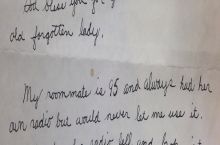 God bless you for
old forgotten lady.
My roommate is 95 and always had her
own radio but would never let me use it.
radio fell and